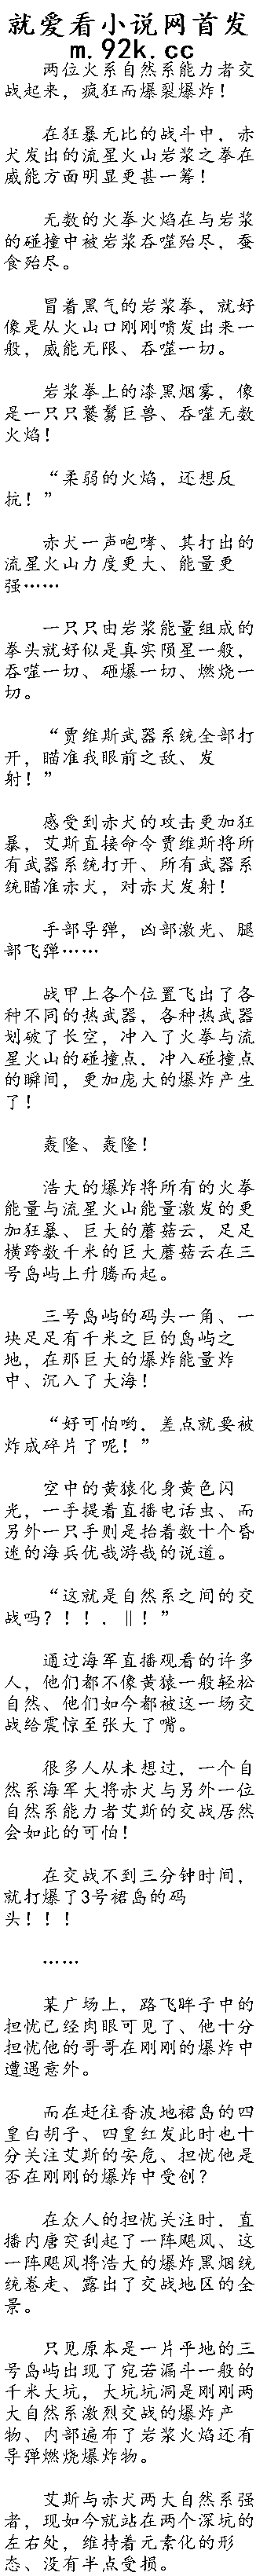 就爱看小说网首发
m.92k.cc
两位火系自然系能力者交
战起来，疯狂而爆裂爆炸！
在狂暴无比的战斗中，赤
犬发出的流星火山岩浆之拳在
威能方面明显更甚一筹！
无数的火拳火焰在与岩浆
的碰撞中被岩浆吞噬殆尽，蚕
食殆尽。
冒着黑气的岩浆拳，就好
像是从火山口刚刚喷发出来一
般，威能无限、吞噬一切。
岩浆拳上的漆黑烟雾，像
是一只只饕鬄巨兽、吞噬无数
火焰！
“柔弱的火焰，还想反
抗！”
赤犬一声咆哮、其打出的
流星火山力度更大、能量更
强……
一只只由岩浆能量组成的
拳头就好似是真实陨星一般，
吞噬一切、砸爆一切、燃烧一
切。
“贾维斯武器系统全部打
开，瞄准我眼前之敌、发
射！”
感受到赤犬的攻击更加狂
暴，艾斯直接命令贾维斯将所
有武器系统打开、所有武器系
统瞄准赤犬，对赤犬发射！
手部导弹，凶部激光、腿
部飞弹……
战甲上各个位置飞出了各
种不同的热武器，各种热武器
划破了长空，冲入了火拳与流
星火山的碰撞点，冲入碰撞点
的瞬间，更加庞大的爆炸产生
了！
轰隆、轰隆！
浩大的爆炸将所有的火拳
能量与流星火山能量激发的更
加狂暴、巨大的蘑菇云，足足
横跨数千米的巨大蘑菇云在三
号岛屿上升腾而起。
三号岛屿的码头一角、一
块足足有千米之巨的岛屿之
地，在那巨大的爆炸能量炸
中、沉入了大海！
“好可怕哟，差点就要被
炸成碎片了呢！”
空中的黄猿化身黄色闪
光，一手提着直播电话虫、而
另外一只手则是抬着数十个昏
迷的海兵优哉游哉的说道。
“这就是自然系之间的交
战吗？！！．‖！”
通过海军直播观看的许多
人，他们都不像黄猿一般轻松
自然、他们如今都被这一场交
战给震惊至张大了嘴。
很多人从未想过，一个自
然系海军大将赤犬与另外一位
自然系能力者艾斯的交战居然
会如此的可怕！
在交战不到三分钟时间，
就打爆了3号裙岛的码
头！！！
……
某广场上，路飞眸子中的
担忧已经肉眼可见了、他十分
担忧他的哥哥在刚刚的爆炸中
遭遇意外。
而在赶往香波地裙岛的四
皇白胡子、四皇红发此时也十
分关注艾斯的安危、担忧他是
否在刚刚的爆炸中受创？
在众人的担忧关注时，直
播内唐突刮起了一阵飓风、这
一阵飓风将浩大的爆炸黑烟统
统卷走、露出了交战地区的全
景。
只见原本是一片平地的三
号岛屿出现了宛若漏斗一般的
千米大坑，大坑坑洞是刚刚两
大自然系激烈交战的爆炸产
物、内部遍布了岩浆火焰还有
导弹燃烧爆炸物。
艾斯与赤犬两大自然系强
者，现如今就站在两个深坑的
左右处，维持着元素化的形
态、没有半点受损。